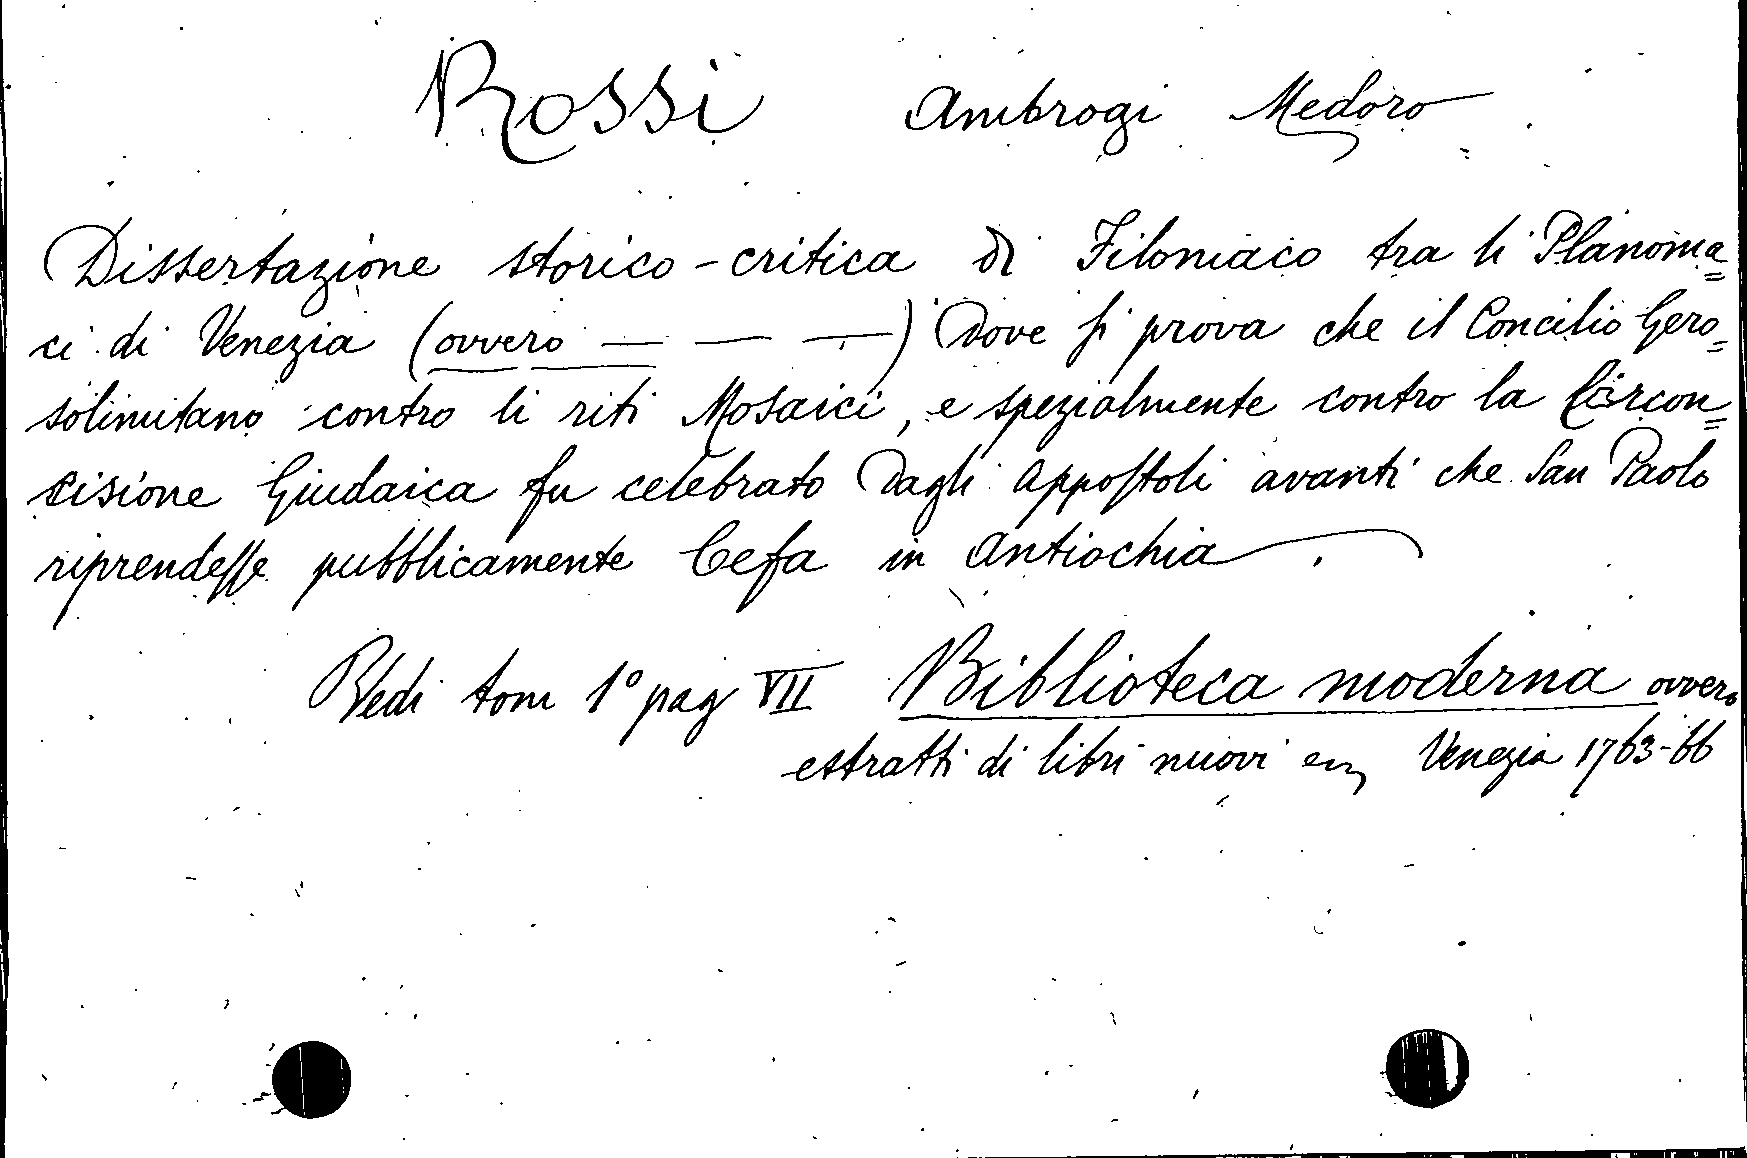 Rossi Ambrogi Medoro
Dissertazione storico-critica di Filomiaco tra li Planoma=
ci di Venezia (ovvero — — —) Dove si prova che il Concilio Gero=
solimitano contro li riti Mosaici, e spezialmente contro la Circon=
cisione Giudaica fu celebrato dagli Appostoli avanti che San Paolo
riprendesse pubblicamente Cefa in Antiochia.
Vedi tom 1º pag VII Biblioteca moderna ovvero
estratti di libri nuovi Venezia 1763-66